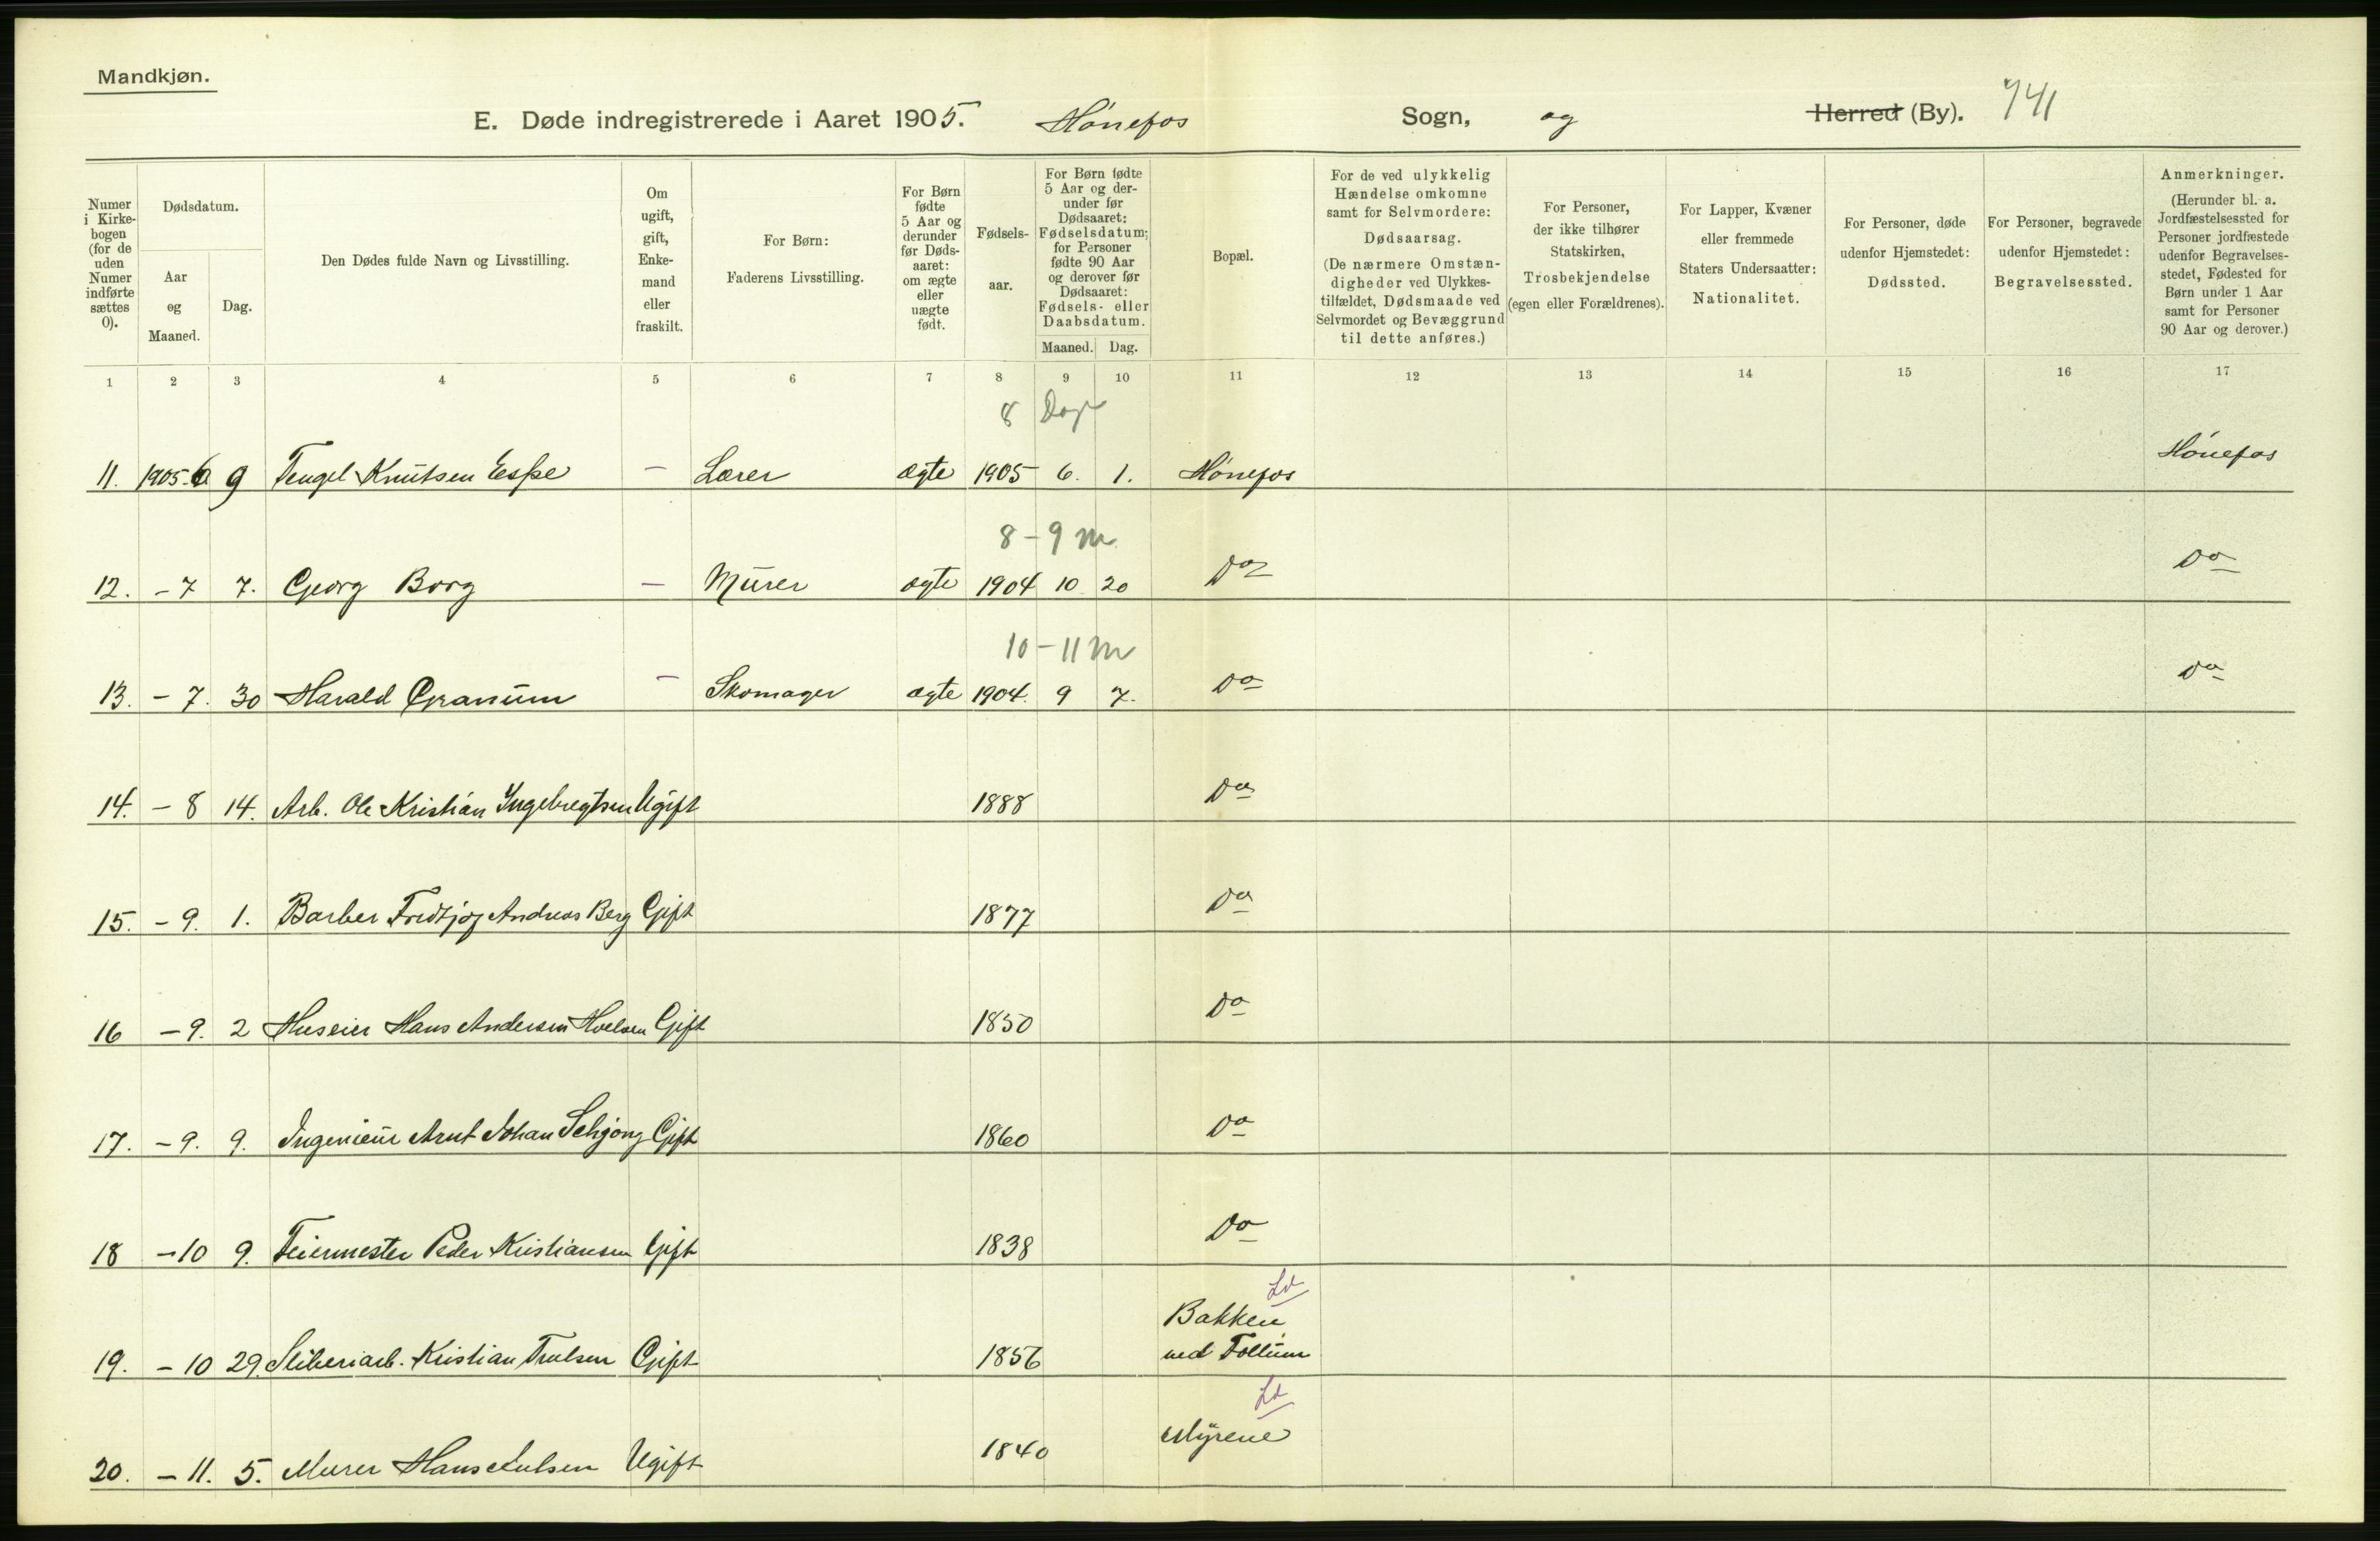 Mandkjøn.
E. Døde indregistrerede i Aaret 1905. Hönefos Sogn, og Herred (By). 741
Numer i Kirkebogen (for de uden Numer indførte sættes 0).
Dødsdatum.
Aar og Maaned.
Dag.
Den Dødes fulde Navn og Livsstilling.
Om ugift, gift, Enkemand eller fraskilt.
For Børn: Faderens Livsstilling.
For Børn fødte 5 Aar og derunder før Dødsaaret: om ægte eller uægte født.
Fødselsaar.
For Børn fødte 5 Aar og derunder før Dødsaaret: Fødselsdatum; for Personer fødte 90 Aar og derover før Dødsaaret: Fødsels- eller Daabsdatum.
Maaned. Dag.
Bopæl.
For de ved ulykkelig Hændelse omkomne samt for Selvmordere: Dødsaarsag. (De nærmere Omstændigheder ved Ulykkestilfældet, Dødsmaade ved Selvmordet og Bevæggrund til dette anføres.)
For Personer, der ikke tilhører Statskirken, Trosbekjendelse (egen eller Forældrenes).
For Lapper, Kvæner eller fremmede Staters Undersaatter: Nationalitet.
For Personer, døde udenfor Hjemstedet: Dødssted.
For Personer, begravede udenfor Hjemstedet: Begravelsessted.
Anmerkninger. (Herunder bl. a. Jordfæstelsessted for Personer jordfæstede udenfor Begravelsesstedet, Fødested for Børn under 1 Aar samt for Personer 90 Aar og derover.)
1 2 3 4 5 6 7 8 9 10 11 12 13 14 15 16 17
8 Dage
11. 1905-6 9 Tengel Knutsen Espe — Lærer ægte 1905 6. 1. Hönefos Hönefos
8-9 m
12. - 7 7. Georg Borg — Murer ægte 1904 10 20 Do Do
10-11 m
13. - 7. 30 Harald Granum — Skomager ægte 1904. 9 7. Do Do
14. - 8 14. Arb. Ole Kristian Ingebregtsen Ugift 1888 Do
15. - 9. 1. Barber Fridtjof Andreas Berg Gift 1877 Do
16 - 9. 2 Huseier Hans Andersen Gift 1850 Do
17. - 9. 9. Ingenieur Arnt Johan Schjong Gift 1860 Do
18 - 10 9. Feiermester Peder Kristiansen Gift 1838 Do
Ld
19. - 10 29. Sliberiarb. Kristian Trulsen Gift 1856 Bakken
ved Follum
Ld
20. - 11. 5. Murer Hans Ugift 1840 Myrene